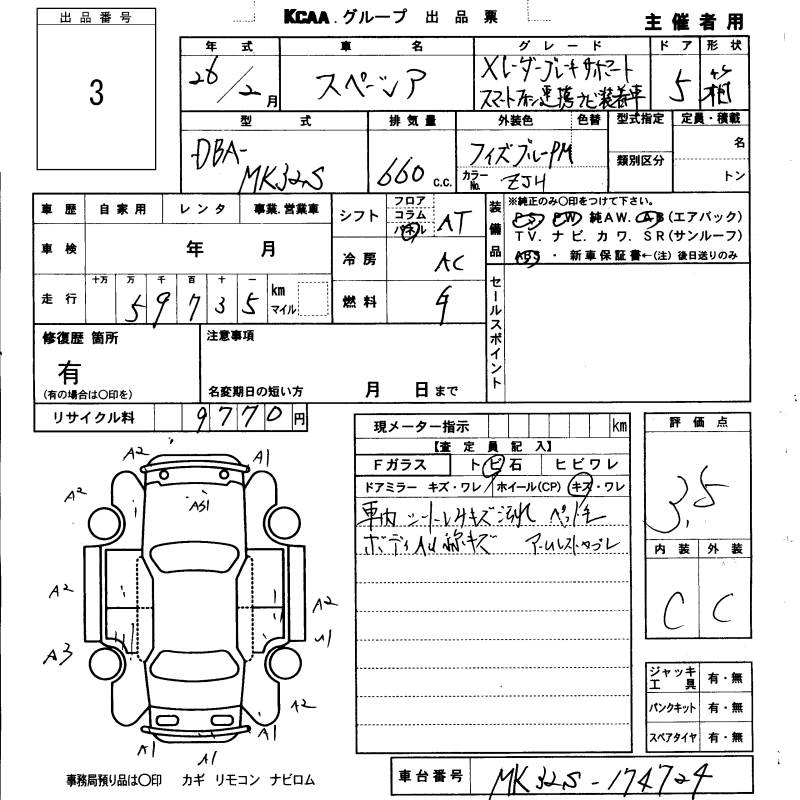 出品番号
3
KCAA.グループ 出品票
主催者用
年式
26/2月
車名
スペーシア
グレード
Xレーダーブレーキサポート
スマートフォン連携ナビ装着車
ドア
5
形状
箱
型式
DBA-
MK32S
排気量
660 c.c.
外装色
フィズブルーPM
色替
カラーNo.
ZJH
型式指定
類別区分
定員・積載
名
トン
車歴 自家用 レンタ 事業.営業車
車検 年 月
走行
十万 万 千 百 十 一
5 9 7 3 5
km
マイル
シフト
フロア
コラム
パネル
AT
冷房 AC
燃料
装備品
※純正のみ〇印をつけて下さい。
PS PW 純AW. AB(エアバック)
TV. ナビ. カワ. SR(サンルーフ)
ABS ・ 新車保証書←(注) 後日送りのみ
セールスポイント
修復歴 箇所
有
(有の場合は〇印を)
注意事項
名変期日の短い方 月 日まで
リサイクル料 9770円
現メーター指示 km
【査定員記入】
Fガラス トビ石 ヒビワレ
ドアミラー キズ・ワレ ホイール(CP) キズ・ワレ
車内 シートレケキズ 汚れ ペット毛
ボディ 線キズ
評価点
3.5
内装 外装
C C
ジャッキ
工具 有・無
パンクキット 有・無
スペアタイヤ 有・無
A2 A1
A2 AS1
A2 A2
A3 U1
A2
A1 A1
A1
事務局預り品は〇印 カギ リモコン ナビロム
車台番号 MK32S-174724